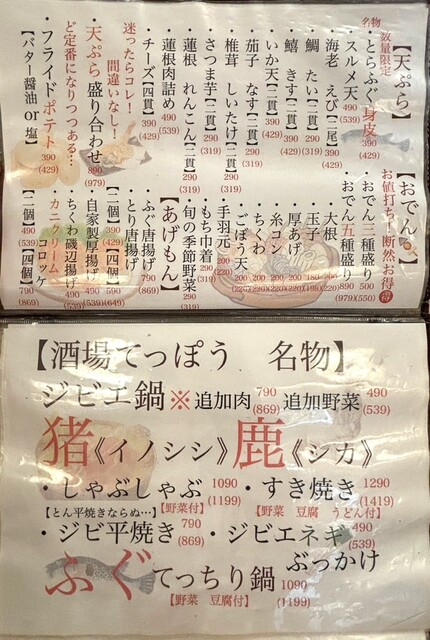 【天ぷら】
名物 数量限定
・とらふぐ身皮 390 (429)
・スルメ天 490 (539)
・海老 えび【二尾】 390 (429)
・鯛 たい【二貫】 290 (319)
・鱚 きす【二貫】 290 (319)
・いか天【二貫】 390 (429)
・茄子 なす【二貫】 290 (319)
・椎茸 しいたけ【二貫】 290 (319)
・さつま芋【二貫】 290 (319)
・蓮根 れんこん【二貫】 290 (319)
・蓮根肉詰め 490 (539)
・チーズ【四貫】 390 (429)
迷ったらコレ！
間違いなし！
・天ぷら 盛り合わせ 890 (979)
ど定番になりつつある…
・フライドポテト 390 (429)
【バター醤油 or 塩】
【おでん】
お値打ち！断然お得 得
・おでん三種盛り 500 (550)
・おでん五種盛り 890 (979)
・大根 200 (220)
・玉子 180 (198)
・厚あげ 200 (220)
・糸コン 200 (220)
・ちくわ 200 (220)
・ごぼう天 200 (220)
・手羽元 200 (220)
・もち巾着 290 (319)
・旬の季節野菜 290 (319)
【あげもん】
・ふぐ唐揚げ 790 (869)
・とり唐揚げ
【二個】 390 (429) 【四個】 590 (649)
・自家製厚揚げ 490 (539)
・ちくわ磯辺揚げ 490 (539)
・カニクリームコロッケ
【二個】 490 (539) 【四個】 790 (869)
【酒場てっぽう 名物】
ジビエ鍋 ※ 追加肉 790 (869) 追加野菜 490 (539)
猪《イノシシ》鹿《シカ》
・しゃぶしゃぶ 1090 (1199) ・すき焼き 1290 (1419)
【野菜付】 【野菜 豆腐 うどん付】
【とん平焼きならぬ…】
・ジビ平焼き 790 (869) ・ジビエネギぶっかけ 490 (539)
ふぐてっちり鍋 1090 (1199)
【野菜 豆腐付】